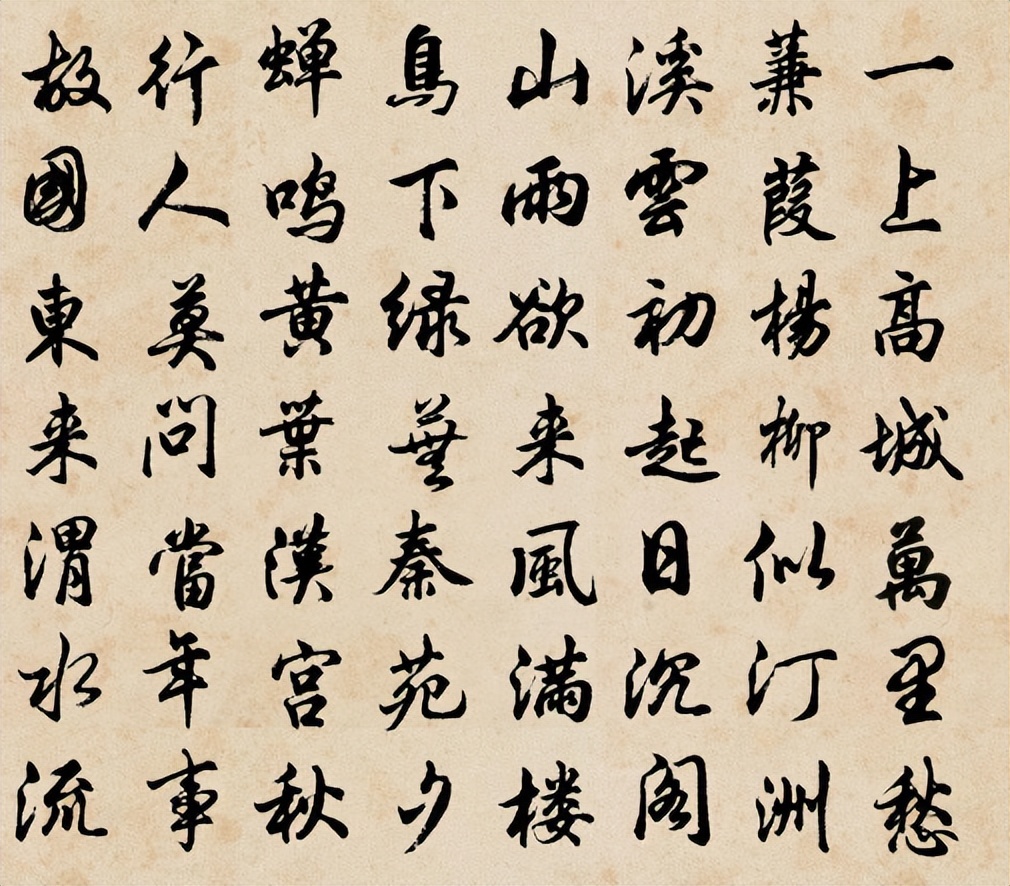 一上高城萬里愁
蒹葭楊柳似汀洲
溪雲初起日沉閣
山雨欲来風满楼
鳥下绿蕪秦苑夕
蝉鸣黄葉漢宫秋
行人莫問當年事
故國東来渭水流